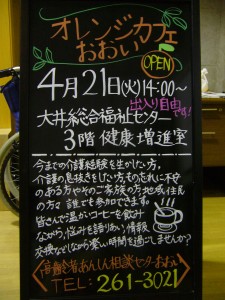 オレンジカフェ
おおい
OPEN
4月21日(火)14:00～
出入り自由です!
大井総合福祉センター
3階 健康増進室
今までの介護経験を生かしたい方。
介護の息抜きをしたい方。もの忘れに不安
のある方やそのご家族の方、地域住民
の方々 誰でも参加できます。
皆さんで温かいコーヒーを飲み
ながら、悩みを語りあい、情報
交換などしながら楽しい時間を過ごしませんか?
高齢者あんしん相談センターおおい
TEL:261-3021